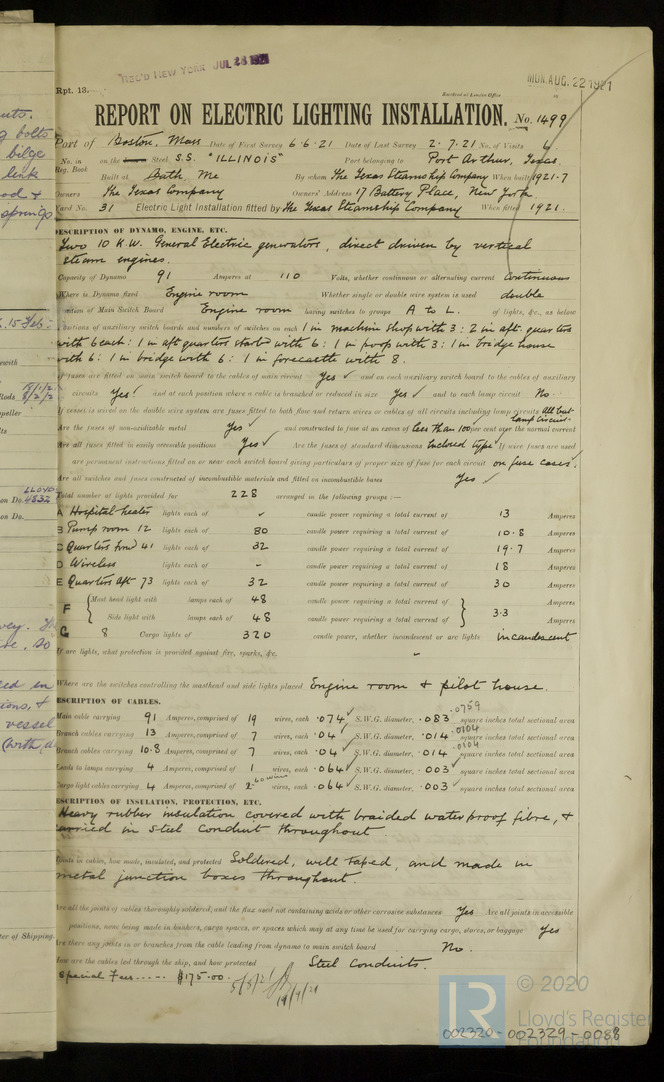 REC'D NEW YORK JUL 28 1921
MON. AUG. 22 1921
Rpt. 13.
Received at London Office
REPORT ON ELECTRIC LIGHTING INSTALLATION. No. 1499
Port of Boston, Mass Date of First Survey 6.6.21 Date of Last Survey 2.7.21 No. of Visits 6
No. in Reg. Book on the Steel S.S. "ILLINOIS" Port belonging to Port Arthur, Texas.
Built at Bath, Me By whom The Texas Steamship Company When built 1921.7
Owners The Texas Company Owners' Address 17 Battery Place, New York.
Yard No. 31 Electric Light Installation fitted by The Texas Steamship Company When fitted 1921.
DESCRIPTION OF DYNAMO, ENGINE, ETC.
Two 10 K.W. General Electric generators, direct driven by vertical
steam engines.
Capacity of Dynamo 91 Amperes at 110 Volts, whether continuous or alternating current Continuous
Where is Dynamo fixed Engine room Whether single or double wire system is used double
Position of Main Switch Board Engine room having switches to groups A to L. of lights, &c., as below
Positions of auxiliary switch boards and numbers of switches on each 1 in machine shop with 3 : 2 in aft. quarters
with 6 each : 1 in aft quarters starb with 6 : 1 in poop with 3 : 1 in bridge house
with 6 : 1 in bridge with 6 : 1 in forecastle with 8.
If fuses are fitted on main switch board to the cables of main circuit Yes ✓ and on each auxiliary switch board to the cables of auxiliary
circuits Yes ✓ and at each position where a cable is branched or reduced in size Yes ✓ and to each lamp circuit No.
If vessel is wired on the double wire system are fuses fitted to both flow and return wires or cables of all circuits including lamp circuits All but lamp circuit
Are the fuses of non-oxidizable metal Yes ✓ and constructed to fuse at an excess of less than 100 per cent over the normal current
Are all fuses fitted in easily accessible positions Yes ✓ Are the fuses of standard dimensions Inclosed type ✓ If wire fuses are used
are permanent instructions fitted on or near each switch board giving particulars of proper size of fuse for each circuit on fuse cases ✓
Are all switches and fuses constructed of incombustible materials and fitted on incombustible bases Yes ✓
Total number of lights provided for 228 arranged in the following groups :—
A Hospital heater lights each of ✓ candle power requiring a total current of 13 Amperes
B Pump room 12 lights each of 80 candle power requiring a total current of 10.8 Amperes
C Quarters Fwd 41 lights each of 32 candle power requiring a total current of 19.7 Amperes
D Wireless lights each of - candle power requiring a total current of 18 Amperes
E Quarters Aft 73 lights each of 32 candle power requiring a total current of 30 Amperes
F Mast head light with lamps each of 48 candle power requiring a total current of 3.3 Amperes
Side light with lamps each of 48 candle power requiring a total current of Amperes
G 8 Cargo lights of 320 candle power, whether incandescent or arc lights incandescent
If arc lights, what protection is provided against fire, sparks, &c. -
Where are the switches controlling the masthead and side lights placed Engine room & pilot house.
DESCRIPTION OF CABLES.
Main cable carrying 91 Amperes, comprised of 19 wires, each .074 ✓ S.W.G. diameter, .083 .0759 square inches total sectional area
Branch cables carrying 13 Amperes, comprised of 7 wires, each .04 ✓ S.W.G. diameter, .014 .0104 square inches total sectional area
Branch cables carrying 10.8 Amperes, comprised of 7 wires, each .04 ✓ S.W.G. diameter, .014 .0104 square inches total sectional area
Leads to lamps carrying 4 Amperes, comprised of 1 wires, each .064 ✓ S.W.G. diameter, .003 ✓ square inches total sectional area
Cargo light cables carrying 4 Amperes, comprised of 2 60 wire wires, each .064 ✓ S.W.G. diameter, .003 ✓ square inches total sectional area
DESCRIPTION OF INSULATION, PROTECTION, ETC.
Heavy rubber insulation covered with braided waterproof fibre, &
carried in steel conduit throughout
Joints in cables, how made, insulated, and protected Soldered, well taped, and made in
metal junction boxes throughout.
Are all the joints of cables thoroughly soldered, and the flux used not containing acids or other corrosive substances Yes Are all joints in accessible
positions, none being made in bunkers, cargo spaces, or spaces which may at any time be used for carrying cargo, stores, or baggage Yes
Are there any joints in or branches from the cable leading from dynamo to main switch board No.
How are the cables led through the ship, and how protected Steel Conduits.
Special Fee ----- $175.00.
© 2020
Lloyd's Register
Foundation
002320-002329-0088